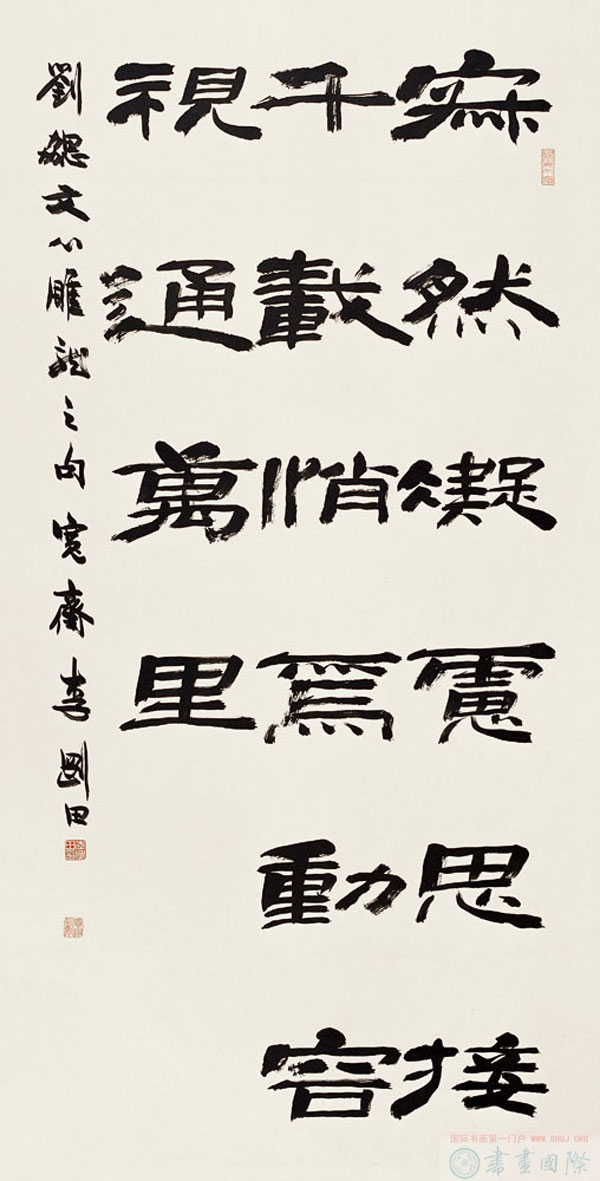 寂然凝慮思接
千載悄焉動容
視通萬里
劉勰文心雕龍之句寬齋李剛田
国际书画第一门户 WWW.SHGJ.ORG
書畫國際